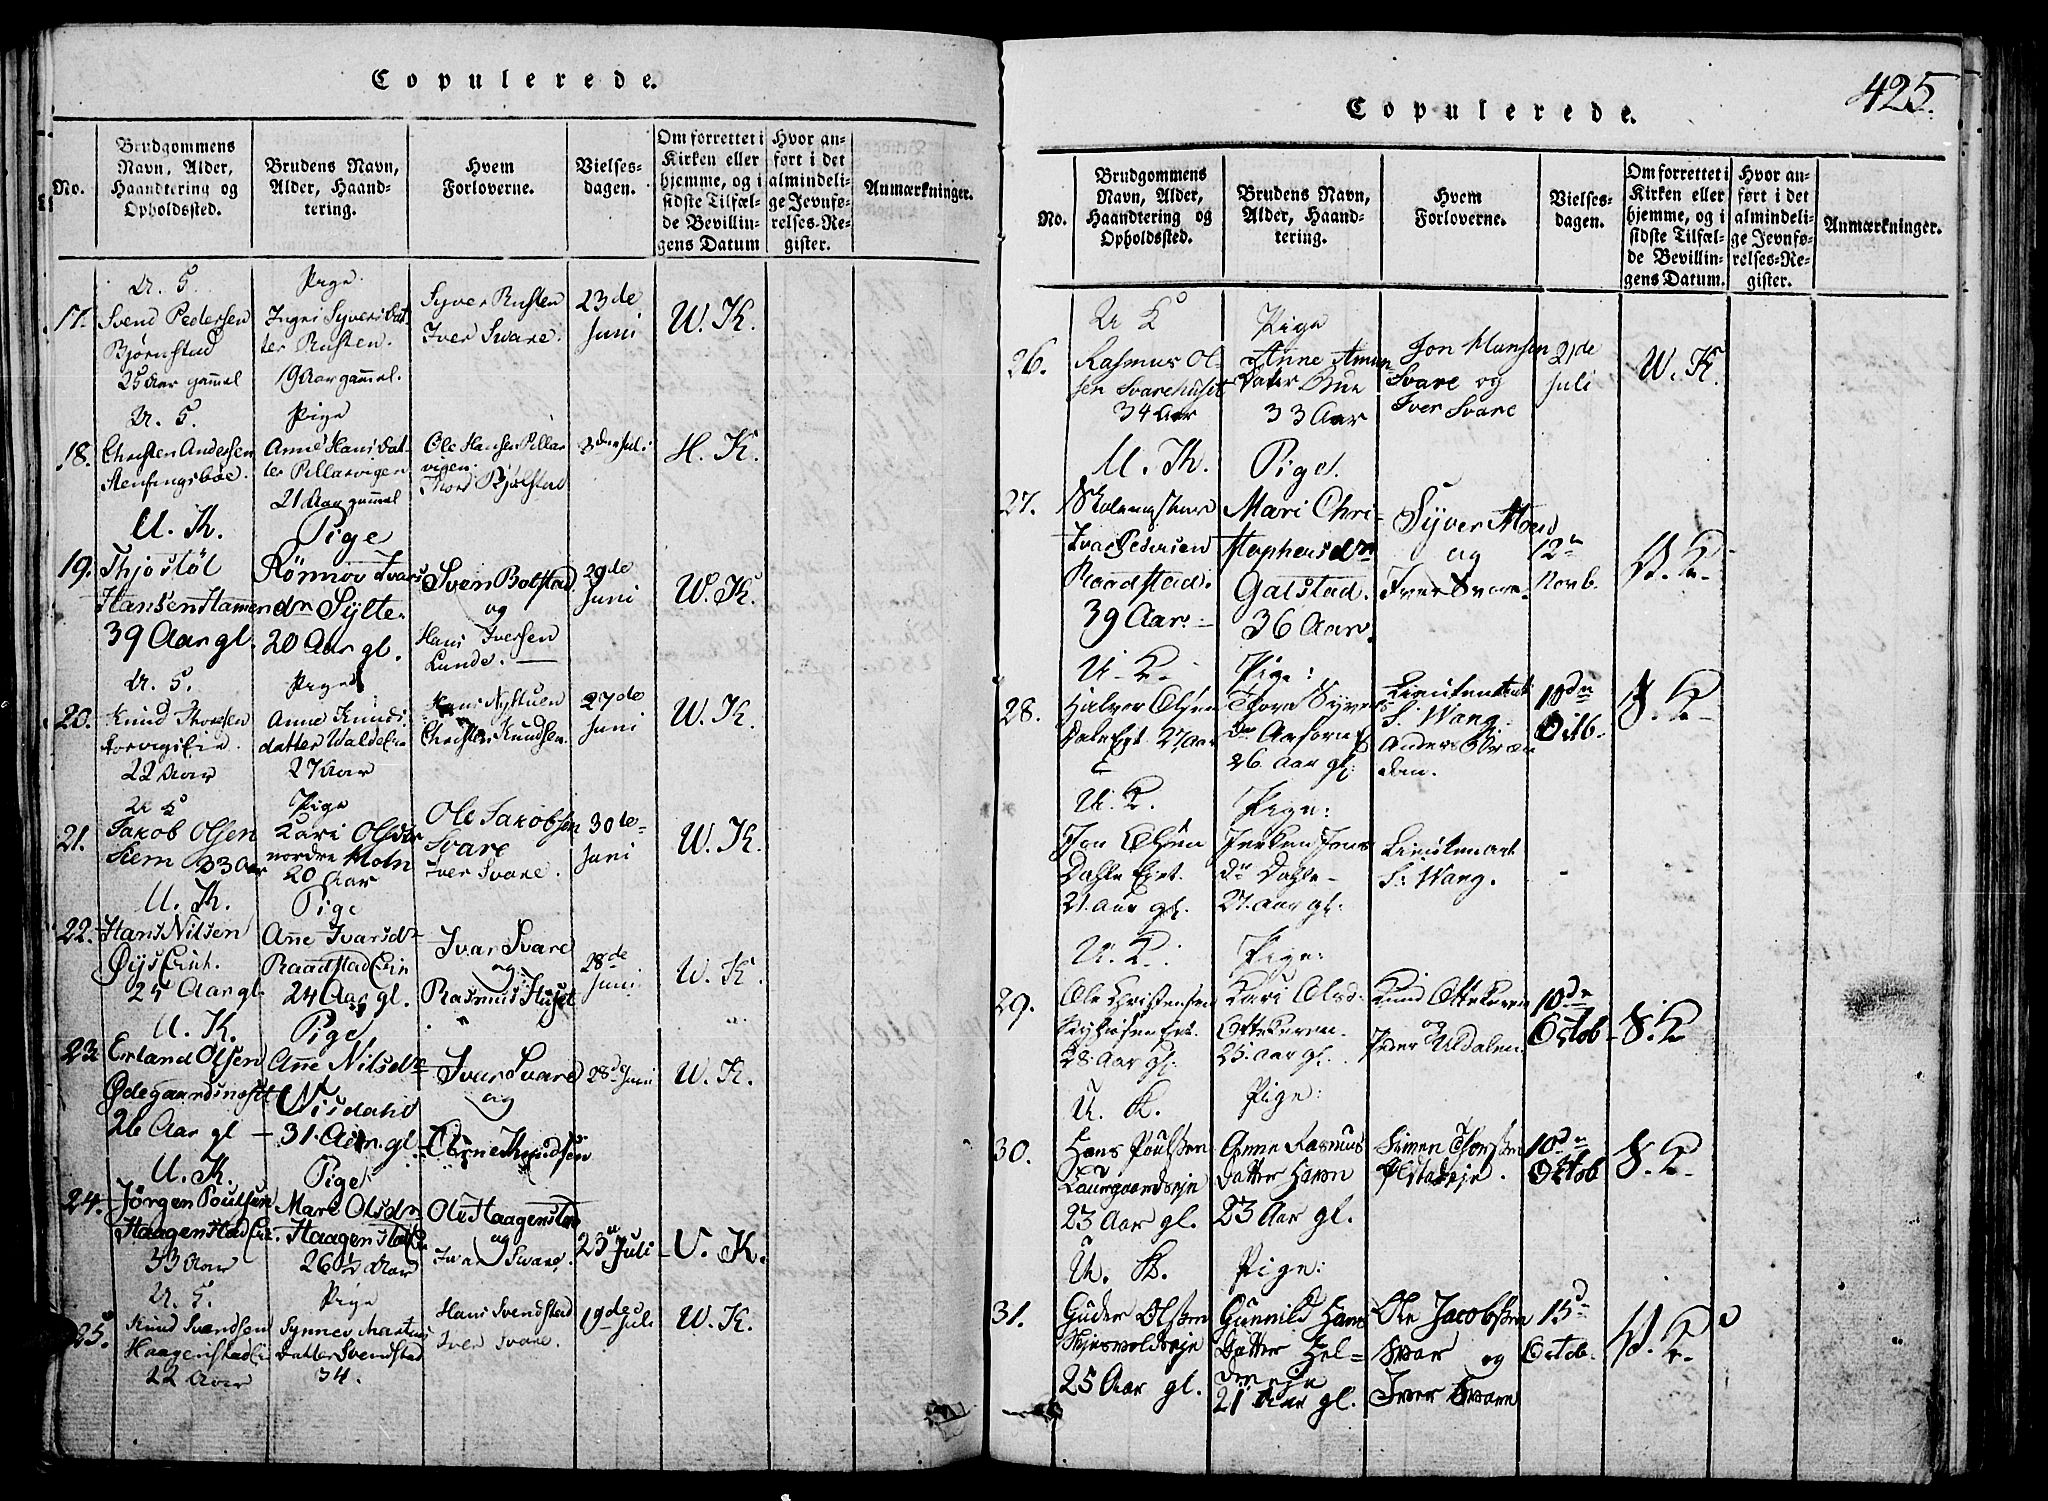 Copulerede.
No.
Brudgommens Navn, Alder, Haandtering og Opholdssted.
Brudens Navn, Alder, Haandtering.
Hvem Forloverne.
Vielsesdagen.
Om forrettet i Kirken eller hjemme, og i sidste Tilfælde Bevillingens Datum
Hvor anført i det almindelige Jevnførelses-Register.
Anmærkninger.
17.
Svend Pedersen
Bjørnstad
25 Aar gammel
Pige
Ingri Syversdatter Rusten.
19 Aar gammel.
Syver Rusten
Iver Svare.
23de Juni
W. K.
18.
Christen Andersen
Pige
Anne Hansdatter Pillarvigen
21 Aar gammel
Ole Hansen Pillarvigen
Thord Bjølstad
3den Juli
H. K.
19.
U. K.
Thjostøl
Hansen Hammen
39 Aar gl.
Pige
Rönnov Ivarsdn Sylte.
20 Aar gl.
Sven Bolstad
og
Hans Iversen
Lunde.
29de Juni
W. K.
20.
Knud Thoresen
22 Aar
Pige
Anne Knudsdatter
27 Aar
Christen Knudsen.
27de Juni
W. K.
21.
Jakob Olsen
Siem 23 Aar
Pige
Kari Olsdtr
nordre Moln
20 Aar
Ole Jakobsen
Svare
Iver Svare.
30de Juni
W. K.
22.
U. K.
Hans Nilsen
25 Aar gl.
Pige
Anne Ivarsdn
Raadstad Eie
24 Aar gl.
Ivar Svare
og
Rasmus Huset
28de Juni
W. K.
23
U. K.
Erland Olsen
26 Aar gl
Pige
Anne Nilsdn
31. Aar gl.
Ivar Svare
og
Arne Knudsen
28de Juni
W. K.
24.
U. K.
Jörgen Poulsen
Haagenstad Eie.
33 Aar
Pige
Mari Olsdn
Haagenstad
26 1/2 Aar
Ole Haagenstad
og
Iver Svare.
23 Juli
V. K.
25.
Knud Svendsen
Haagenstad Eie
22 Aar
Pige
Synnev Mortensdatter Svendstad
34.
Hans Svendstad
Iver Svare.
19de Juli
W. K.
425.
Copulerede.
No.
Brudgommens Navn, Alder, Haandtering og Opholdssted.
Brudens Navn, Alder, Haandtering.
Hvem Forloverne.
Vielsesdagen.
Om forrettet i Kirken eller hjemme, og i sidste Tilfælde Bevillingens Datum.
Hvor anført i det almindelige Jevnførelses-Register.
Anmærkninger.
26.
U K
Rasmus Olsen Svarehuset
34 Aar
Pige
Anne Amun
Datter Bue
33 Aar
Jon Hansen
Svare og
Iver Svare
21de Juli
W. K.
27.
U. K.
Skolemester
Ivar Pedersen
Raadstad.
39 Aar.
Pige.
Mari Christophersdn
Galstad.
36 Aar.
Syver Moen
og
Iver Svare.
12n Novb.
V. K.
28.
U. K.
Halvor Olsen
27 Aar
Pige:
Thora Syversdn
26 Aar gl:
Lieutenant
S. Wang.
18dn Octb.
S. K.
U. K.
Jon Olsen
Dahle Eiet.
21. Aar gl.
Pige:
Dahle
27. Aar gl:
Lieutenant
S: Wang.
29.
U. K.
Ole Christensen
28. Aar gl:
Pige:
Kari Olsd:
25. Aar gl.
Knud
Peder Uldalen
10de Octob
S. K
30.
U. K.
Hans Poulssen
Laurgaardseje
23 Aar gl.
Pige:
Anne Rasmusdatter Havn
23 Aar gl.
Simen Thorssen
10dn Octob
S. K.
31.
U. K.
Guder Olssen
25 Aar gl.
Pige:
Gunnild Hansdatter Heldereje
21 Aar gl.
Ole Jacobssen
Svar og
Iver Svare
15d Octob.
V. K.